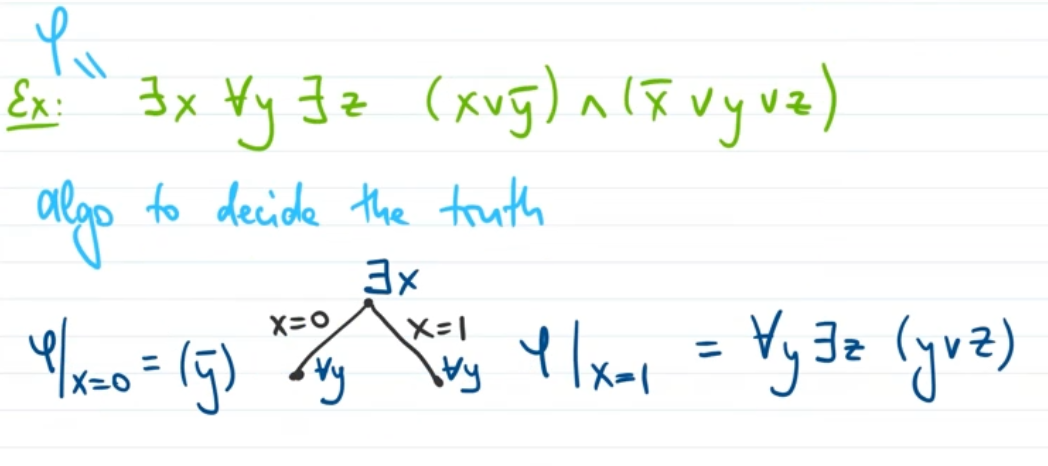 φ
Ex: ∃x ∀y ∃z (x∨ȳ) ∧ (x̄ ∨ y ∨ z)
algo to decide the truth
∃x
x=0 x=1
φ|x=0 = (ȳ) ∀y ∀y φ|x=1 = ∀y ∃z (y∨z)